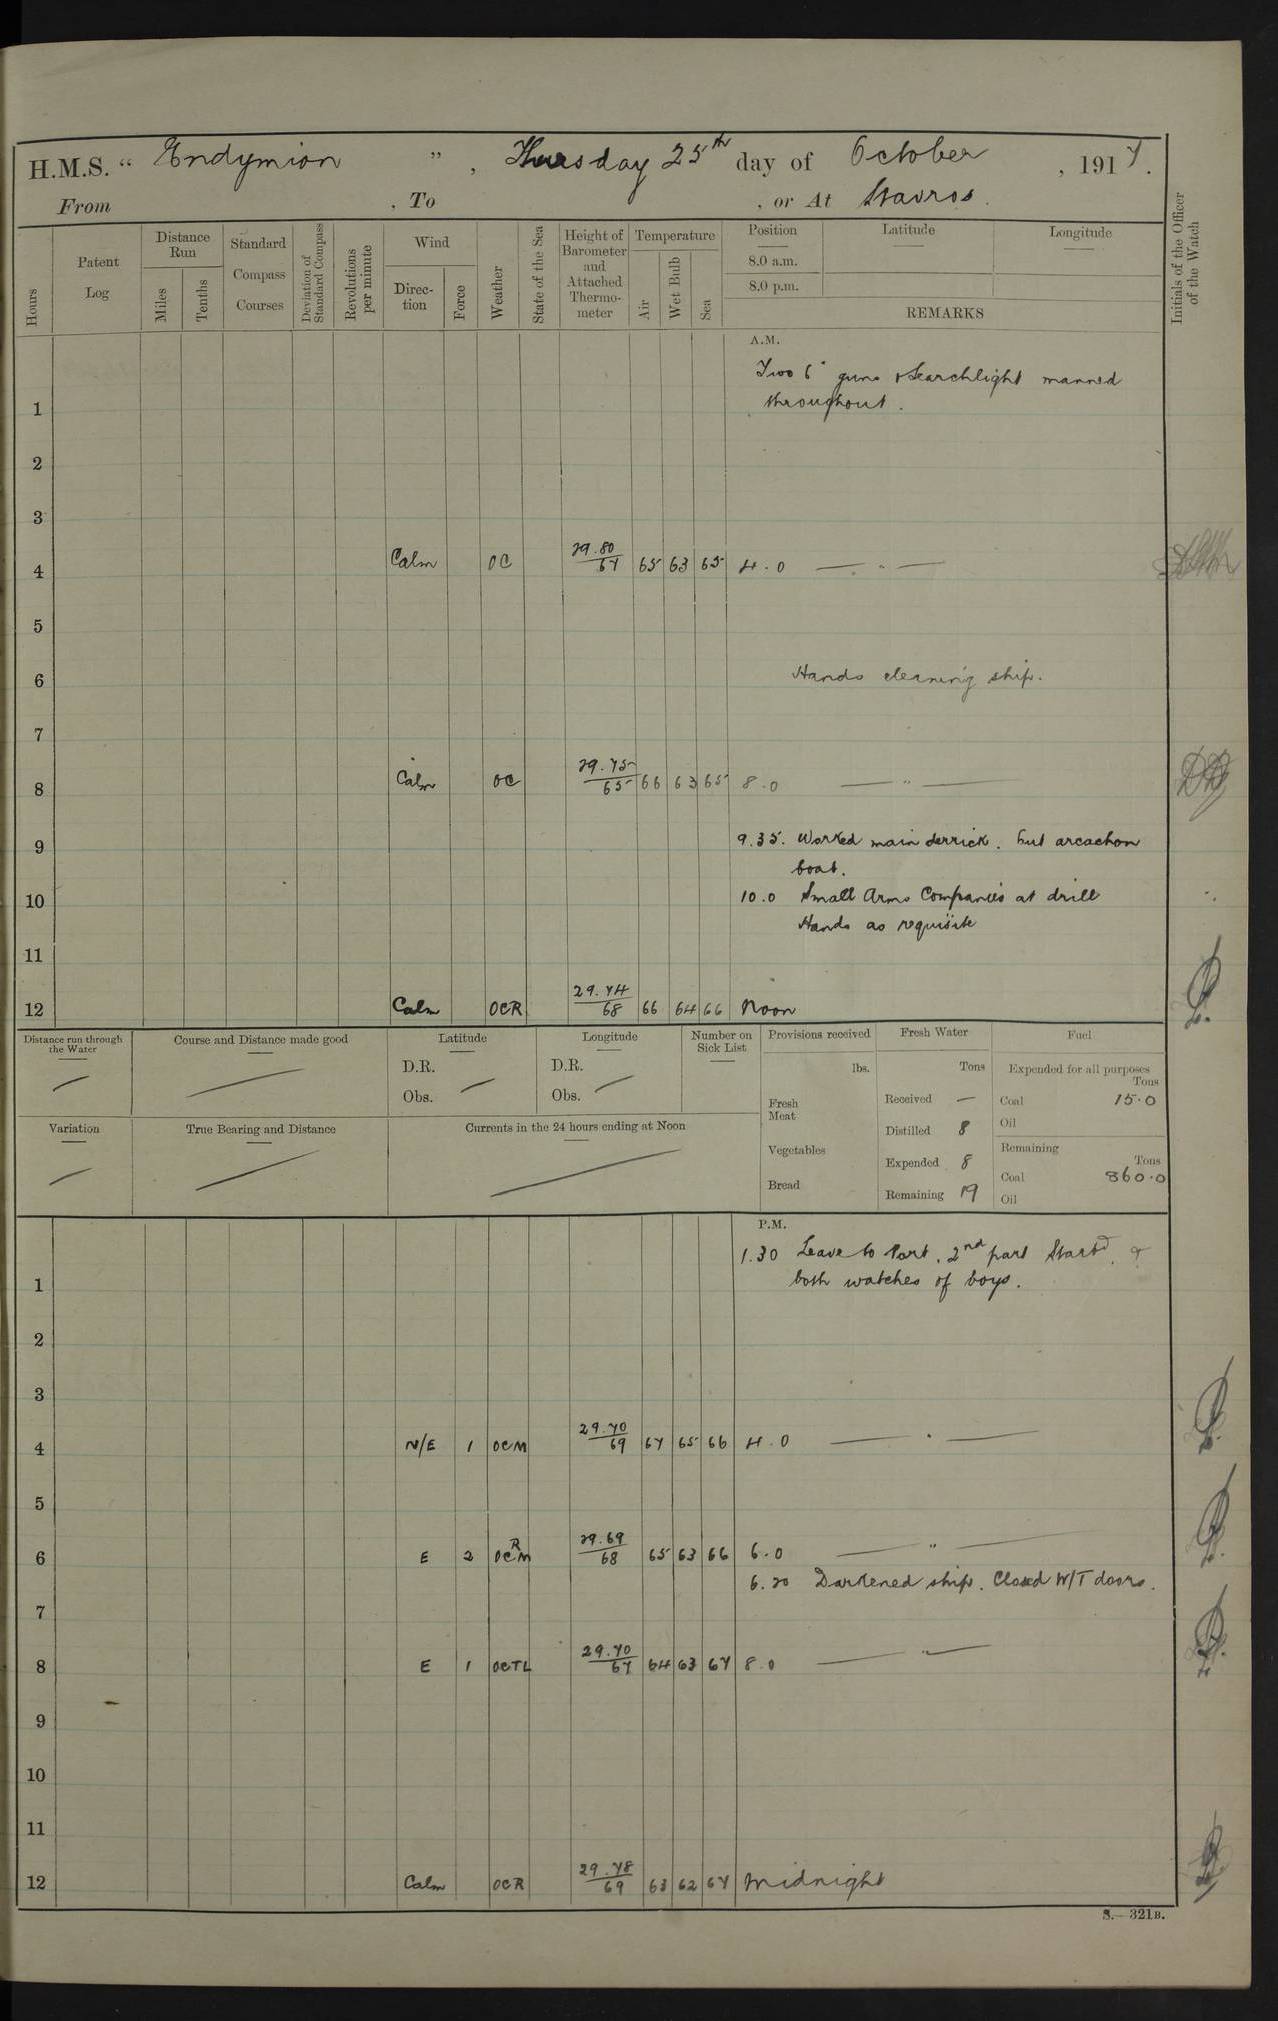 H.M.S. “ Endymion ”, Thursday 25th day of October, 1917.
From , To , or At Stavros.
Hours
Patent Log
Distance Run
Miles
Tenths
Standard Compass Courses
Deviation of Standard Compass
Revolutions per minute
Wind
Direction
Force
Weather
State of the Sea
Height of Barometer and Attached Thermometer
Temperature
Air
Wet Bulb
Sea
Position
8.0 a.m.
8.0 p.m.
Latitude
Longitude
REMARKS
Initials of the Officer of the Watch
A.M.
Two 6" guns & Searchlight manned
1 throughout.
2
3
4 Calm OC 29.80/67 65 63 65 4.0 — " —
5
6 Hands cleaning ship.
7
8 Calm OC 29.75/65 66 63 65 8.0 — " —
9 9.35. Worked main derrick. but arcachon
boat.
10 10.0 Small Arms Companies at drill
Hands as requisite
11
12 Calm OCR 29.74/68 66 64 66 Noon
Distance run through the Water
Course and Distance made good
Latitude
D.R.
Obs.
Longitude
D.R.
Obs.
Number on Sick List
Provisions received
lbs.
Fresh Meat
Vegetables
Bread
Fresh Water
Tons
Received —
Distilled 8
Expended 8
Remaining 19
Fuel
Expended for all purposes
Tons
Coal 15.0
Oil
Remaining
Tons
Coal 860.0
Oil
Variation
True Bearing and Distance
Currents in the 24 hours ending at Noon
P.M.
1.30 Leave to Port, 2nd part Starbd &
1 both watches of boys.
2
3
4 N/E 1 OCM 29.70/69 67 65 66 4.0 — " —
5
6 E 2 OCRM 29.69/68 65 63 66 6.0 — " —
6.20 Darkened ship. Closed W/T doors.
7
8 E 1 OCTL 29.70/67 64 63 67 8.0 — " —
9
10
11
12 Calm OCR 29.78/69 63 62 67 Midnight
S.— 321B.